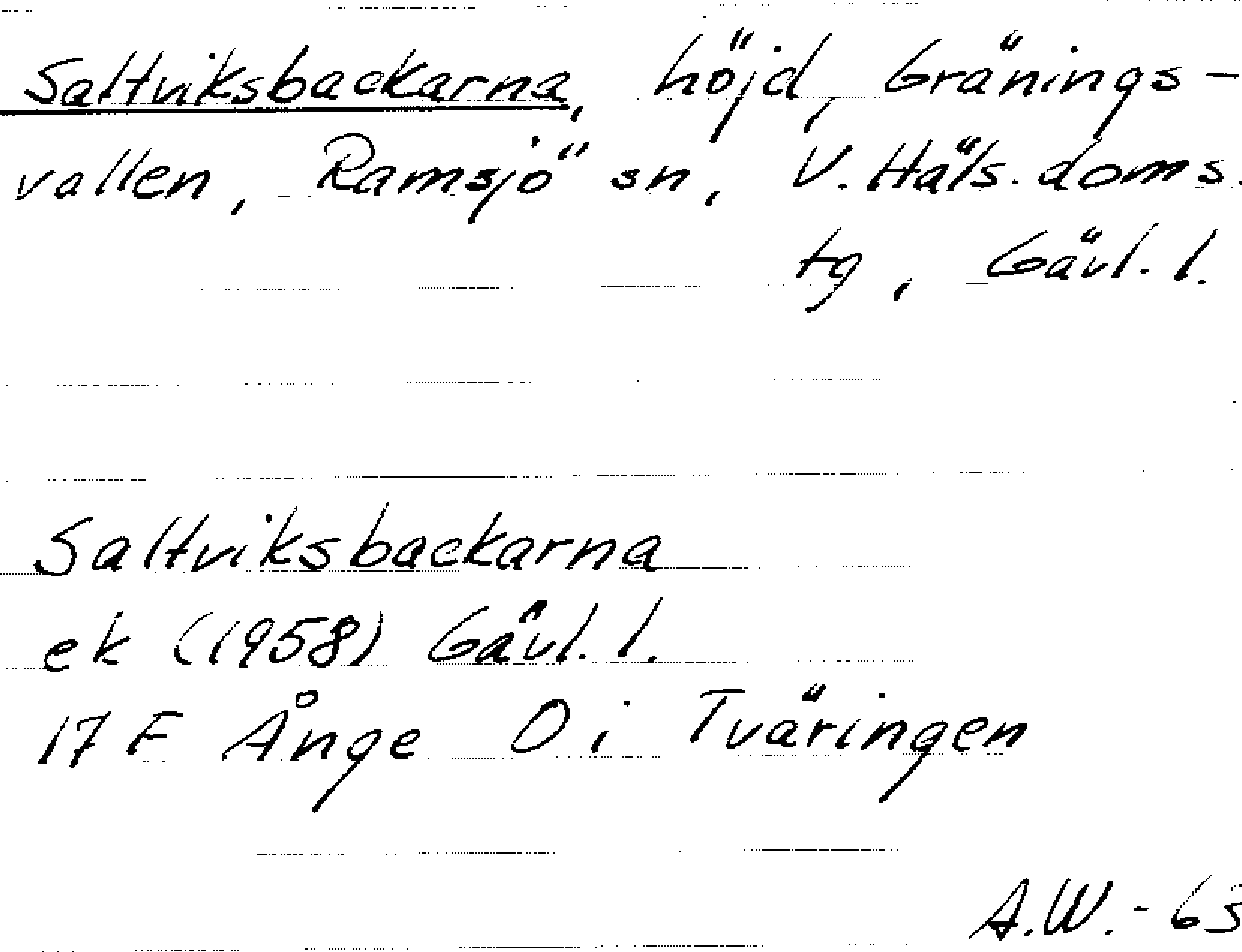 Saltviksbackarna, höjd, Gränings-
vallen, Ramsjö sn, V. Häls. doms.
tg, Gävl. l.
Saltviksbackarna
ek (1958) Gävl. l.
17 F Ånge 0 i Tväringen
A.W. - 63